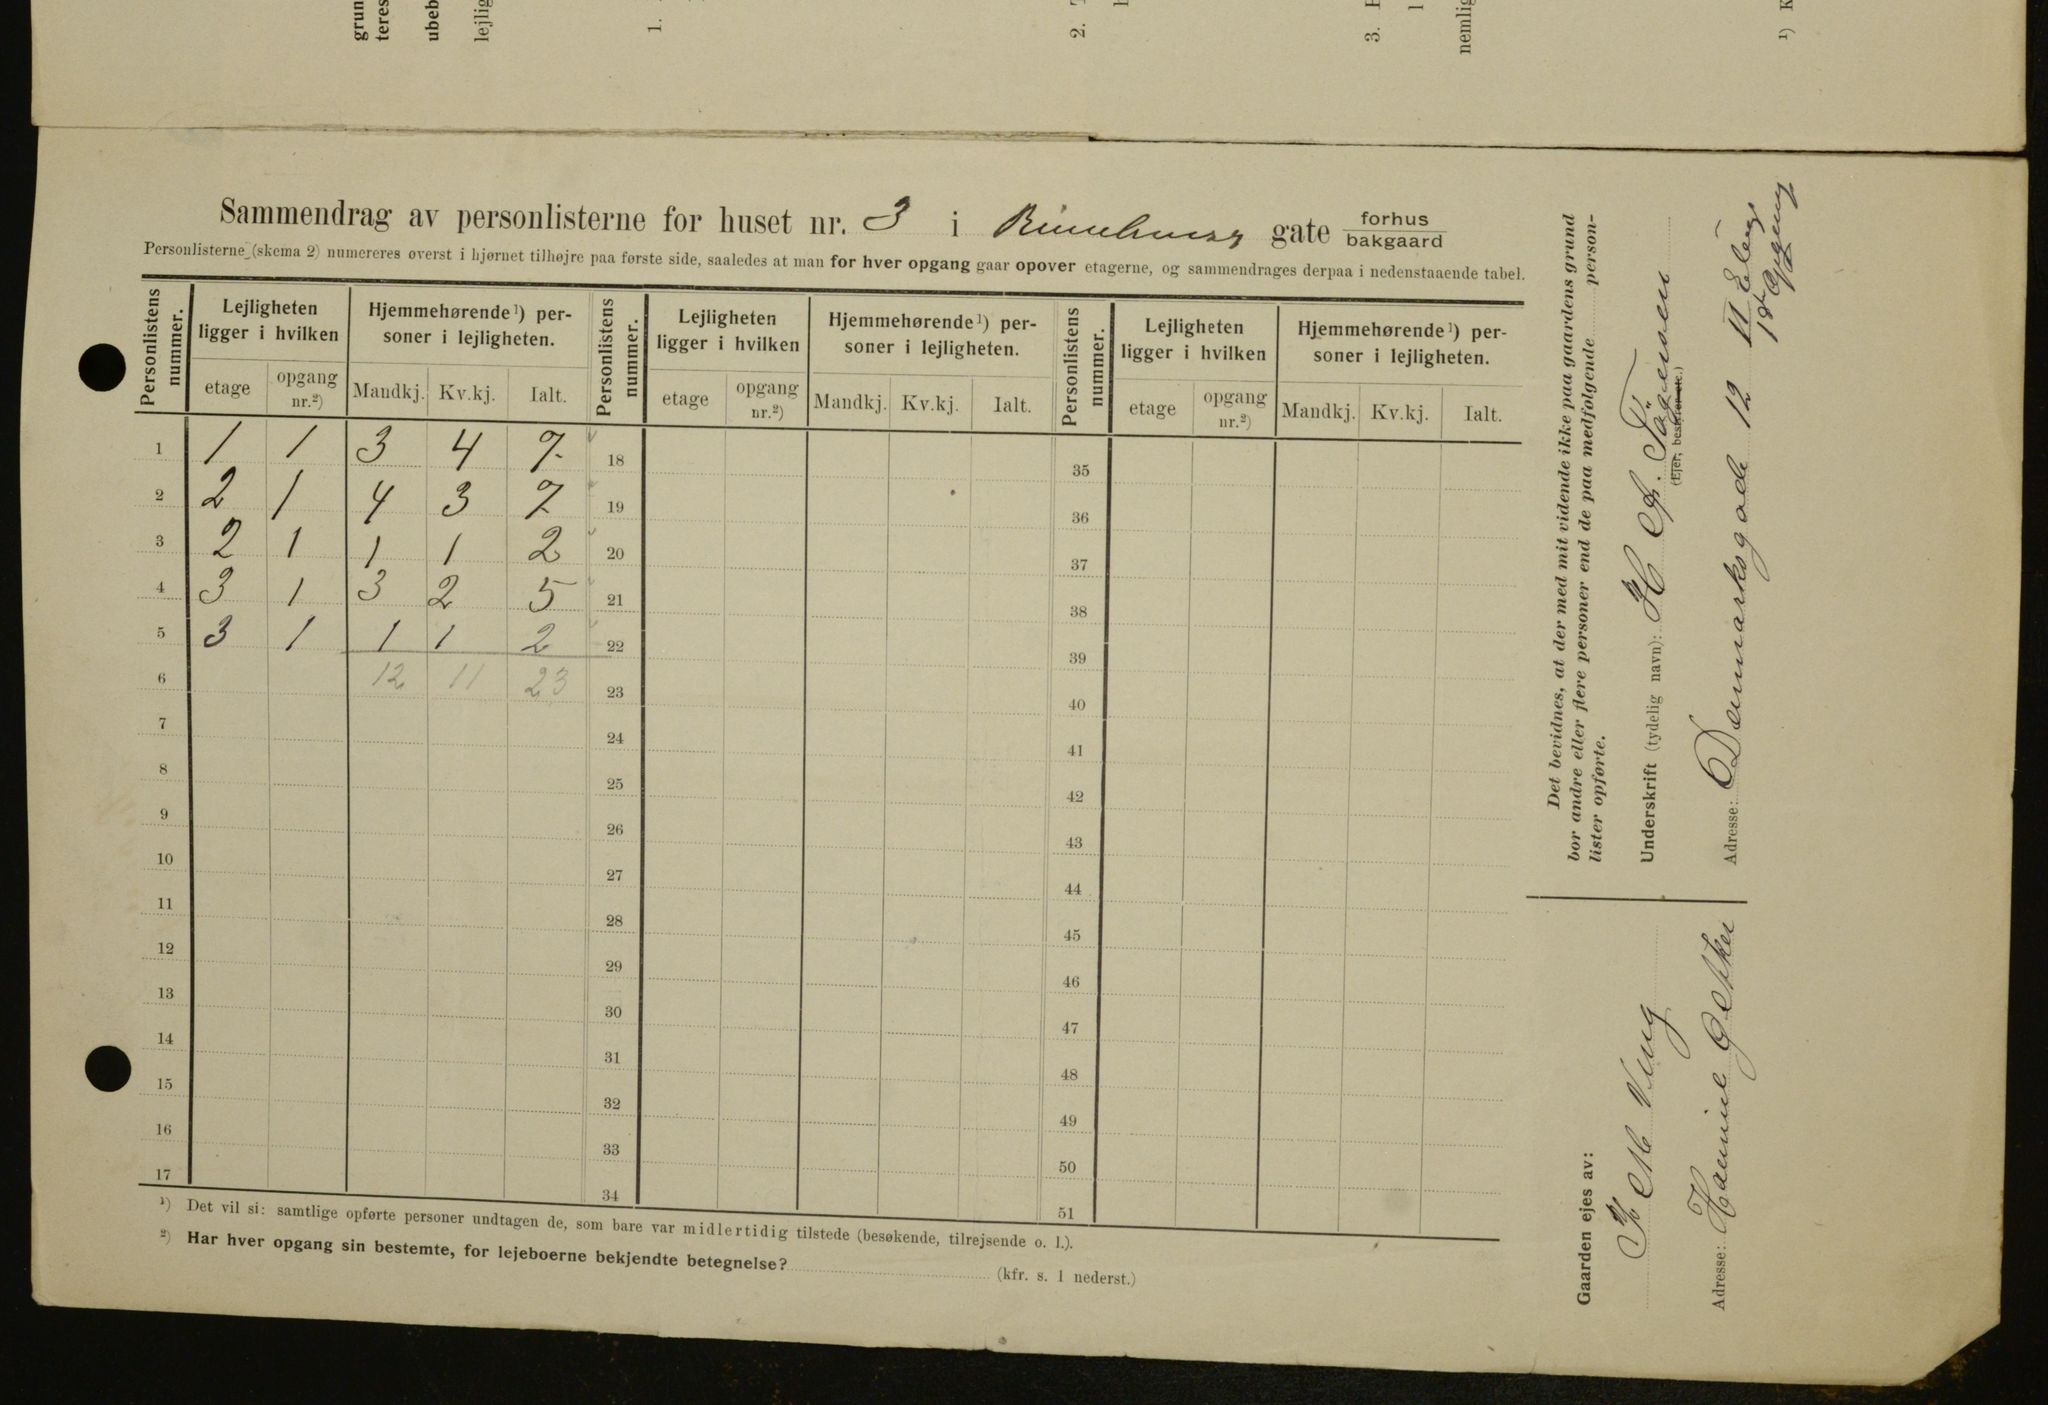 grun
teres
ubeb
lejlig
1.
2.
3.
nemlig
¹) K
Sammendrag av personlisterne for huset nr. 3 i gate forhus
bakgaard
Personlisterne (skema 2) numereres øverst i hjørnet tilhøjre paa første side, saaledes at man for hver opgang gaar opover etagerne, og sammendrages derpaa i nedenstaaende tabel.
Personlistens nummer. Lejligheten ligger i hvilken Hjemmehørende¹) personer i lejligheten. Personlistens nummer. Lejligheten ligger i hvilken Hjemmehørende¹) personer i lejligheten. Personlistens nummer. Lejligheten ligger i hvilken Hjemmehørende¹) personer i lejligheten.
etage opgang nr.²) Mandkj. Kv.kj. Ialt. etage opgang nr.²) Mandkj. Kv.kj. Ialt. etage opgang nr.²) Mandkj. Kv.kj. Ialt.
1 1 1 3 4 7 18 35
2 2 1 4 3 7 19 36
3 2 1 1 1 2 20 37
4 3 1 3 2 5 21 38
5 3 1 1 1 2 22 39
6 12 11 23 23 40
7 24 41
8 25 42
9 26 43
10 27 44
11 28 45
12 29 46
13 30 47
14 31 48
15 32 49
16 33 50
17 34 51
¹) Det vil si: samtlige opførte personer undtagen de, som bare var midlertidig tilstede (besøkende, tilrejsende o. l.).
²) Har hver opgang sin bestemte, for lejeboerne bekjendte betegnelse? (kfr. s. 1 nederst.)
Det bevidnes, at der med mit vidende ikke paa gaardens grund
bor andre eller flere personer end de paa medfølgende person-
lister opførte.
Underskrift (tydelig navn):
(Ejer, bestyrer etc.)
Adresse: Danmarksgade 12 II Etage
1st Opgang
Gaarden ejes av:
Adresse: